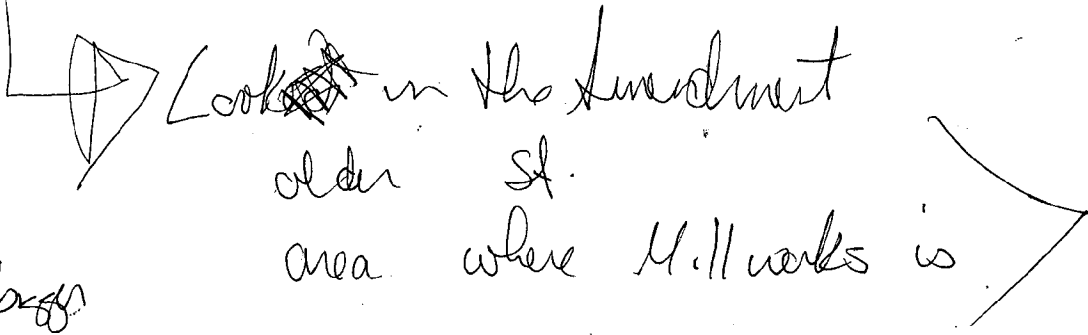 Look in the Amendment
older St.
area where Millworks is